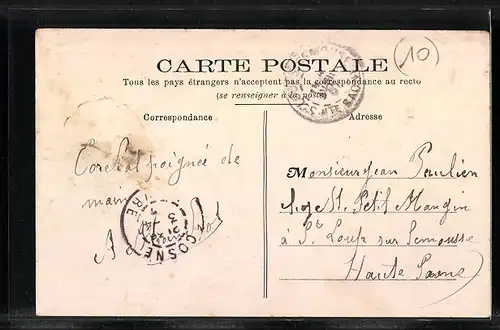 (10)
CARTE POSTALE
Tous les pays étrangers n'acceptent pas la correspondance au recto
(se renseigner à la poste)
Correspondance
Adresse
Cordial poignée de
main
Monsieur Jean Paulien
Petit Mangin
à St Loup sur Semouse
Haute Saone
COSNE